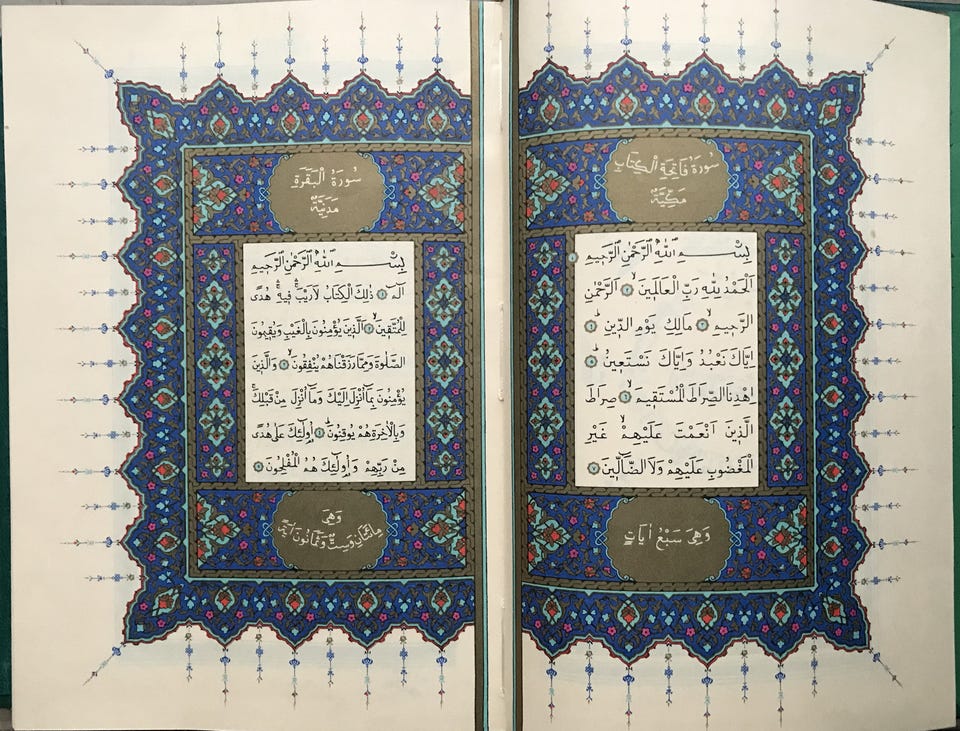 سُورَةُ فَاتِحَةِ الْكِتَابِ
مَكِّيَّةٌ
بِسْمِ ٱللّٰهِ ٱلرَّحْمٰنِ ٱلرَّحِيمِ ١
اَلْحَمْدُ لِلّٰهِ رَبِّ الْعَالَمِينَۙ ٢ اَلرَّحْمٰنِ
الرَّحِيمِۙ ٣ مَالِكِ يَوْمِ الدِّينِۜ ٤
اِيَّاكَ نَعْبُدُ وَاِيَّاكَ نَسْتَعِينُۜ ٥
اِهْدِنَا الصِّرَاطَ الْمُسْتَقِيمَۙ ٦ صِرَاطَ
الَّذِينَ اَنْعَمْتَ عَلَيْهِمْۙ غَيْرِ
الْمَغْضُوبِ عَلَيْهِمْ وَلَا الضَّٓالِّينَ ٧
وَهِيَ سَبْعُ اٰيَاتٍ
سُورَةُ الْبَقَرَةِ
مَدَنِيَّةٌ
بِسْمِ ٱللّٰهِ ٱلرَّحْمٰنِ ٱلرَّحِيمِ
الٓمٓ ١ ذٰلِكَ الْكِتَابُ لَا رَيْبَۚۛ فِيهِۚۛ هُدًى
لِلْمُتَّقِينَۙ ٢ اَلَّذِينَ يُؤْمِنُونَ بِالْغَيْبِ وَيُقِيمُونَ
الصَّلٰوةَ وَمِمَّا رَزَقْنَاهُمْ يُنْفِقُونَۙ ٣ وَالَّذِينَ
يُؤْمِنُونَ بِمَٓا اُنْزِلَ اِلَيْكَ وَمَٓا اُنْزِلَ مِنْ قَبْلِكَۚ
وَبِالْاٰخِرَةِ هُمْ يُوقِنُونَۜ ٤ اُو۬لٰٓئِكَ عَلٰى هُدًى
مِنْ رَبِّهِمْ وَاُو۬لٰٓئِكَ هُمُ الْمُفْلِحُونَ ٥
وَهِيَ
مِائَتَانِ وَسِتٌّ وَثَمَانُونَ اٰيَةً